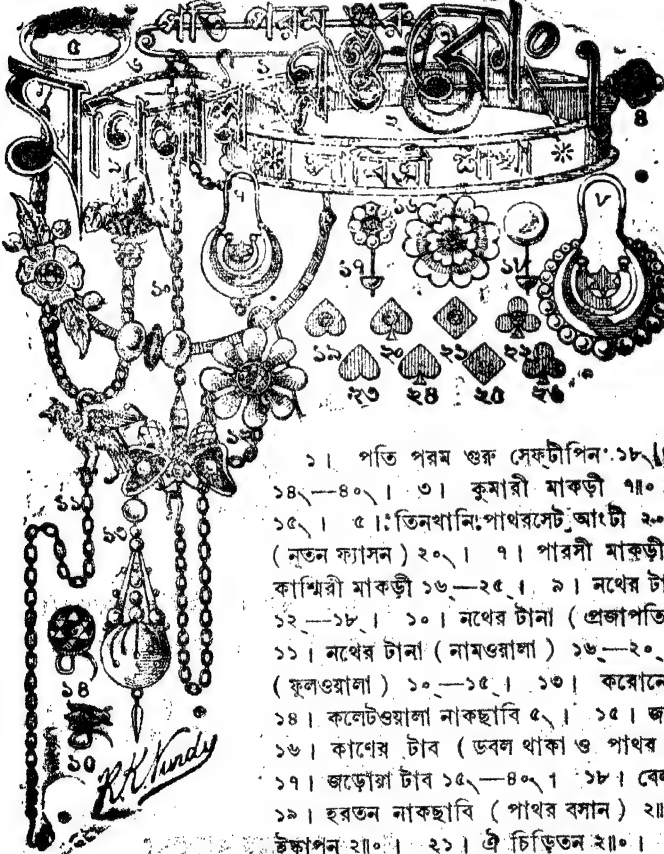 পতি পরম গুরু
মণিলাল এণ্ড কোং
সাবিত্রী শাঁখা
৫
৬
১
২
৪
৭
৮
১০
১৭
১৬
১৮
১৯ ২০ ২১ ২২
২৩ ২৪ ২৫ ২৬
১২
১১
১৩
১৪
১৫
R.K. Nundy
১। পতি পরম গুরু সেফ্‌টীপিন ১৮৲।
১৪৲—৪০৲। ৩। কুমারী মাকড়ী ৭॥০
১৫৲। ৫। তিনখানি পাথরসেট আংটী
(নূতন ফ্যাসন) ২০৲। ৭। পারসী মাকড়ী
কাশ্মিরী মাকড়ী ১৬৲—২৫৲। ৯। নথের
১২৲—১৮৲। ১০। নথের টানা (প্রজাপতি
১১। নথের টানা (নামওয়ালা) ১৬৲—২০৲
(ফুলওয়ালা) ১০৲—১৫৲। ১৩।
১৪। কলেটওয়ালা নাকছাবি ৫৲। ১৫।
১৬। কাণের টাব (ডবল থাকা ও পাথর
১৭। জড়োয়া টাব ১৫৲—৪০৲। ১৮।
১৯। হরতন নাকছাবি (পাথর বসান) ২॥
ইস্কাপন ২॥০। ২১। ঐ চিড়িতন ২॥০।